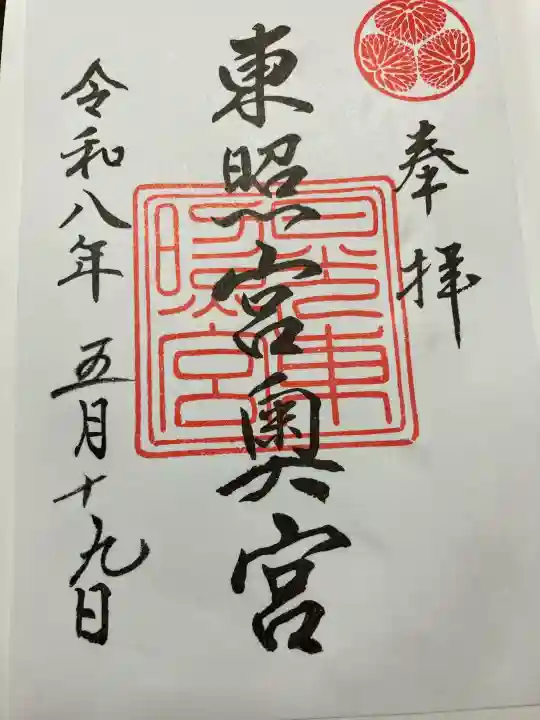 奉拝
東照宮奥宮
日光東照宮
令和八年五月十九日